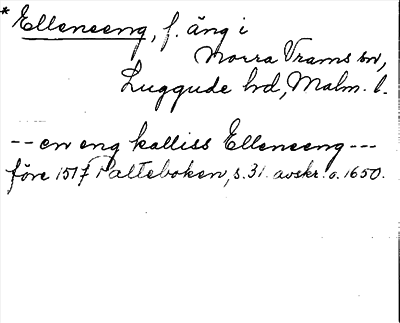 * Elleneeng, f. äng i
Norra Vrams sn,
Luggude hd, Malm. l.
-- en eng kalliss Elleneeng ---
före 1517 Palteboken, s. 31. avskr. o. 1650.